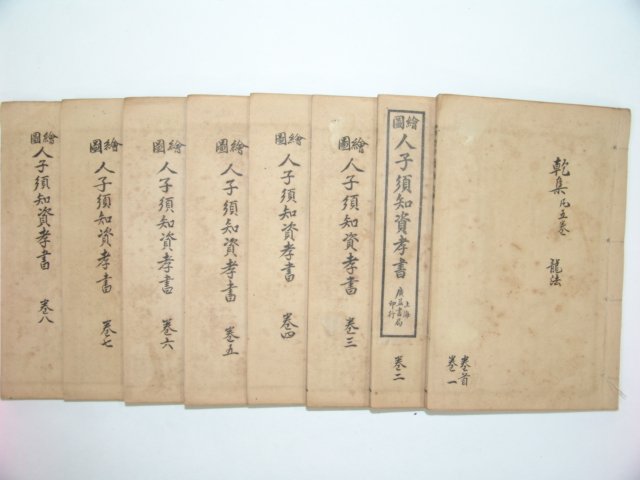 乾集凡五卷 龍法
卷首
卷一
繪圖
人子須知資孝書
上海
廣益書局
印行
卷二
繪圖
人子須知資孝書
卷三
繪圖
人子須知資孝書
卷四
繪圖
人子須知資孝書
卷五
繪圖
人子須知資孝書
卷六
繪圖
人子須知資孝書
卷七
繪圖
人子須知資孝書
卷八